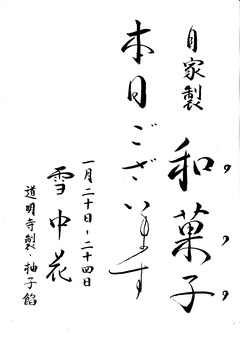 自家製 和菓子
本日ございます
一月二十日～二十四日
雪中花
道明寺製・柚子餡